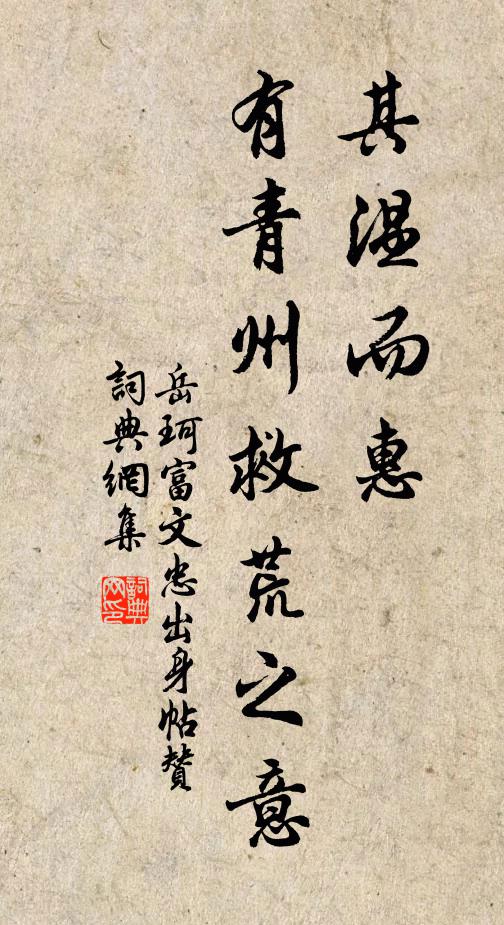 其温而惠
有青州救荒之意
岳珂富文忠出身帖贊
詞典網集
詞典網印